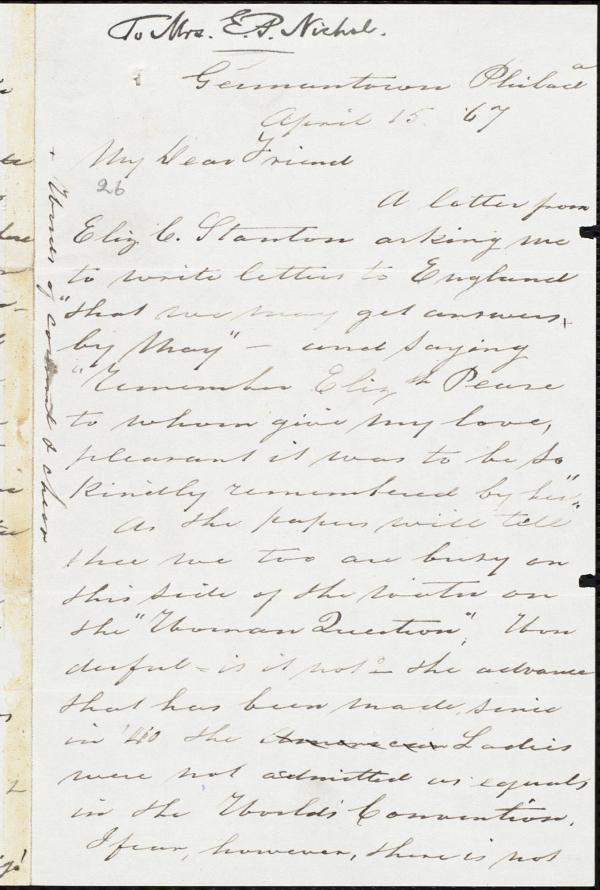 To Mrs. E. P. Nichol.
Germantown Philad a
April 15 '67
My Dear Friend
26
A letter from
Eliz C. Stanton asking me
to write letters to England
"that we may get answers,
by May" - and saying
"Remember Eliz th Pease
to whom give my love,
pleasant it was to be so
kindly remembered by her".
As the papers will tell
thee we too are busy on
this side of the water on
the "Woman Question", Won
derful - is it not? - the advance
that has been made, since
in '40 the American Ladies
were not admitted as equals
in the World's Convention.
I fear, however, there is not
+ Words of & cheer